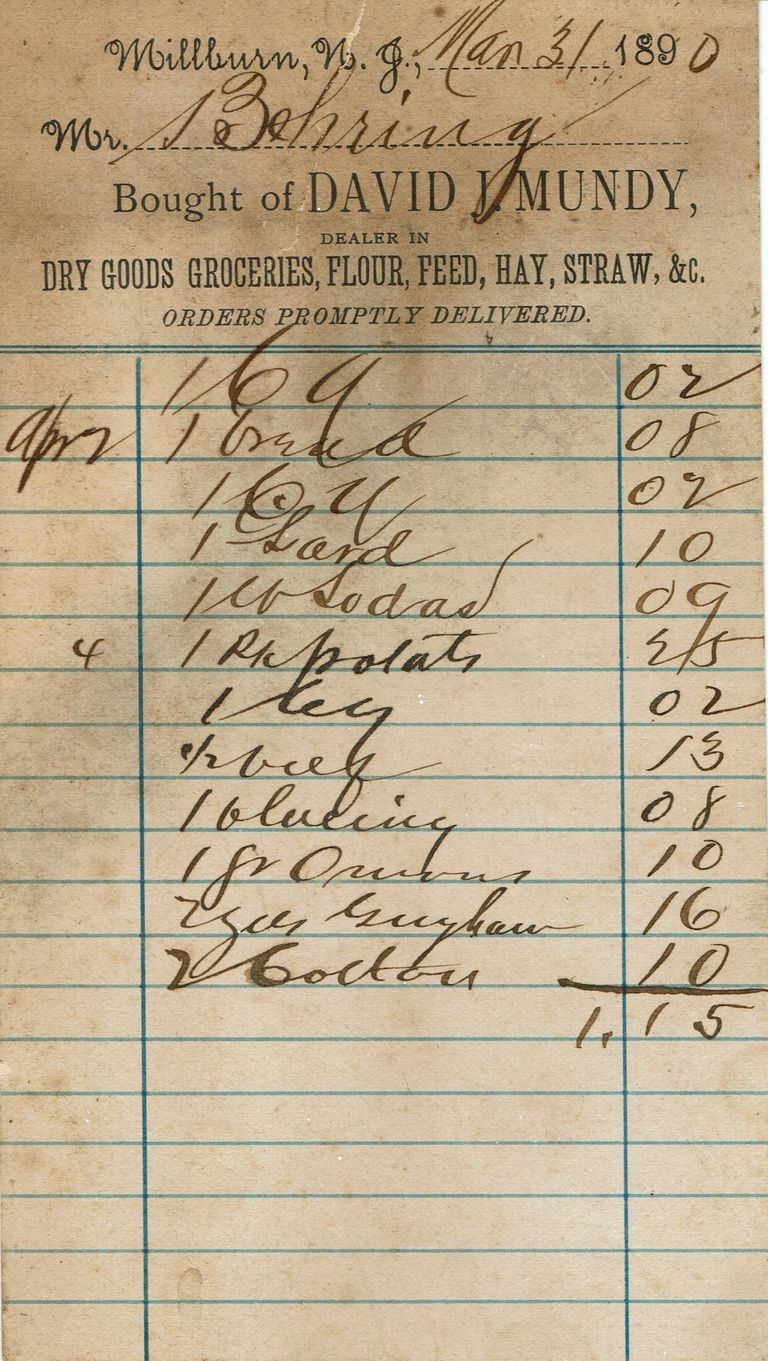 Millburn, N. J., Mar 31 1890
Mr. Behring
Bought of DAVID J. MUNDY,
DEALER IN
DRY GOODS GROCERIES, FLOUR, FEED, HAY, STRAW, &C.
ORDERS PROMPTLY DELIVERED.
1 02
Apr 2 1 Bread 08
1 02
1 Lard 10
1 lb Sodas 09
4 1 Pk potats 25
1 02
1/2 13
1 blueing 08
1 qr Onions 10
2 yds Gingham 16
2 Cotton 10
1.15